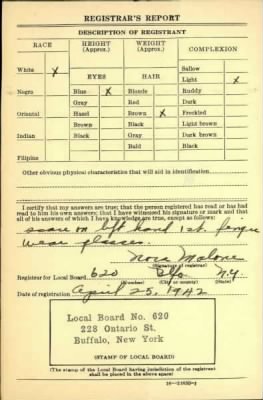 REGISTRAR'S REPORT
DESCRIPTION OF REGISTRANT
RACE HEIGHT (Approx.) WEIGHT (Approx.) COMPLEXION
White X Sallow
EYES HAIR Light X
Negro Blue X Blonde Ruddy
Gray Red Dark
Oriental Hazel Brown X Freckled
Brown Black Light brown
Indian Black Gray Dark brown
Bald Black
Filipino
Other obvious physical characteristics that will aid in identification
I certify that my answers are true; that the person registered has read or has had
read to him his own answers; that I have witnessed his signature or mark and that
all of his answers of which I have knowledge are true, except as follows:
scar on left hand 1st. finger
wear glasses.
Nora Malone
(Signature of registrar)
Registrar for Local Board 620 Bflo N.Y.
(Number) (City or county) (State)
Date of registration April 25, 1942
Local Board No. 620
228 Ontario St.
Buffalo, New York
(STAMP OF LOCAL BOARD)
(The stamp of the Local Board having jurisdiction of the registrant
shall be placed in the above space)